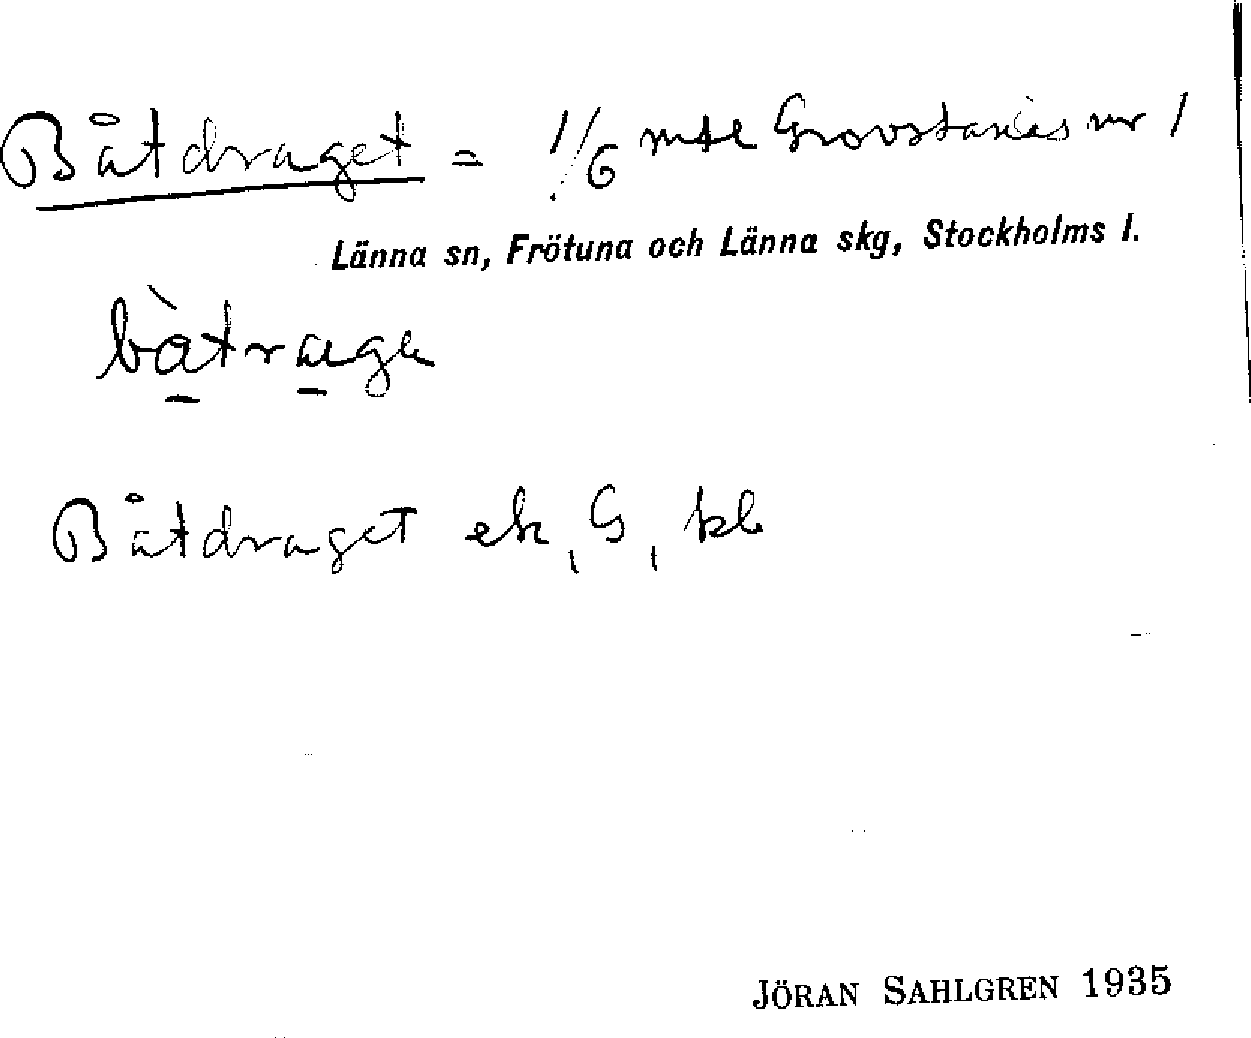 Båtdraget = 1/6 mtl Grovstanäs nr 1
Länna sn, Frötuna och Länna skg, Stockholms l.
bàtrage
Båtdraget ek, G, kb
JÖRAN SAHLGREN 1935